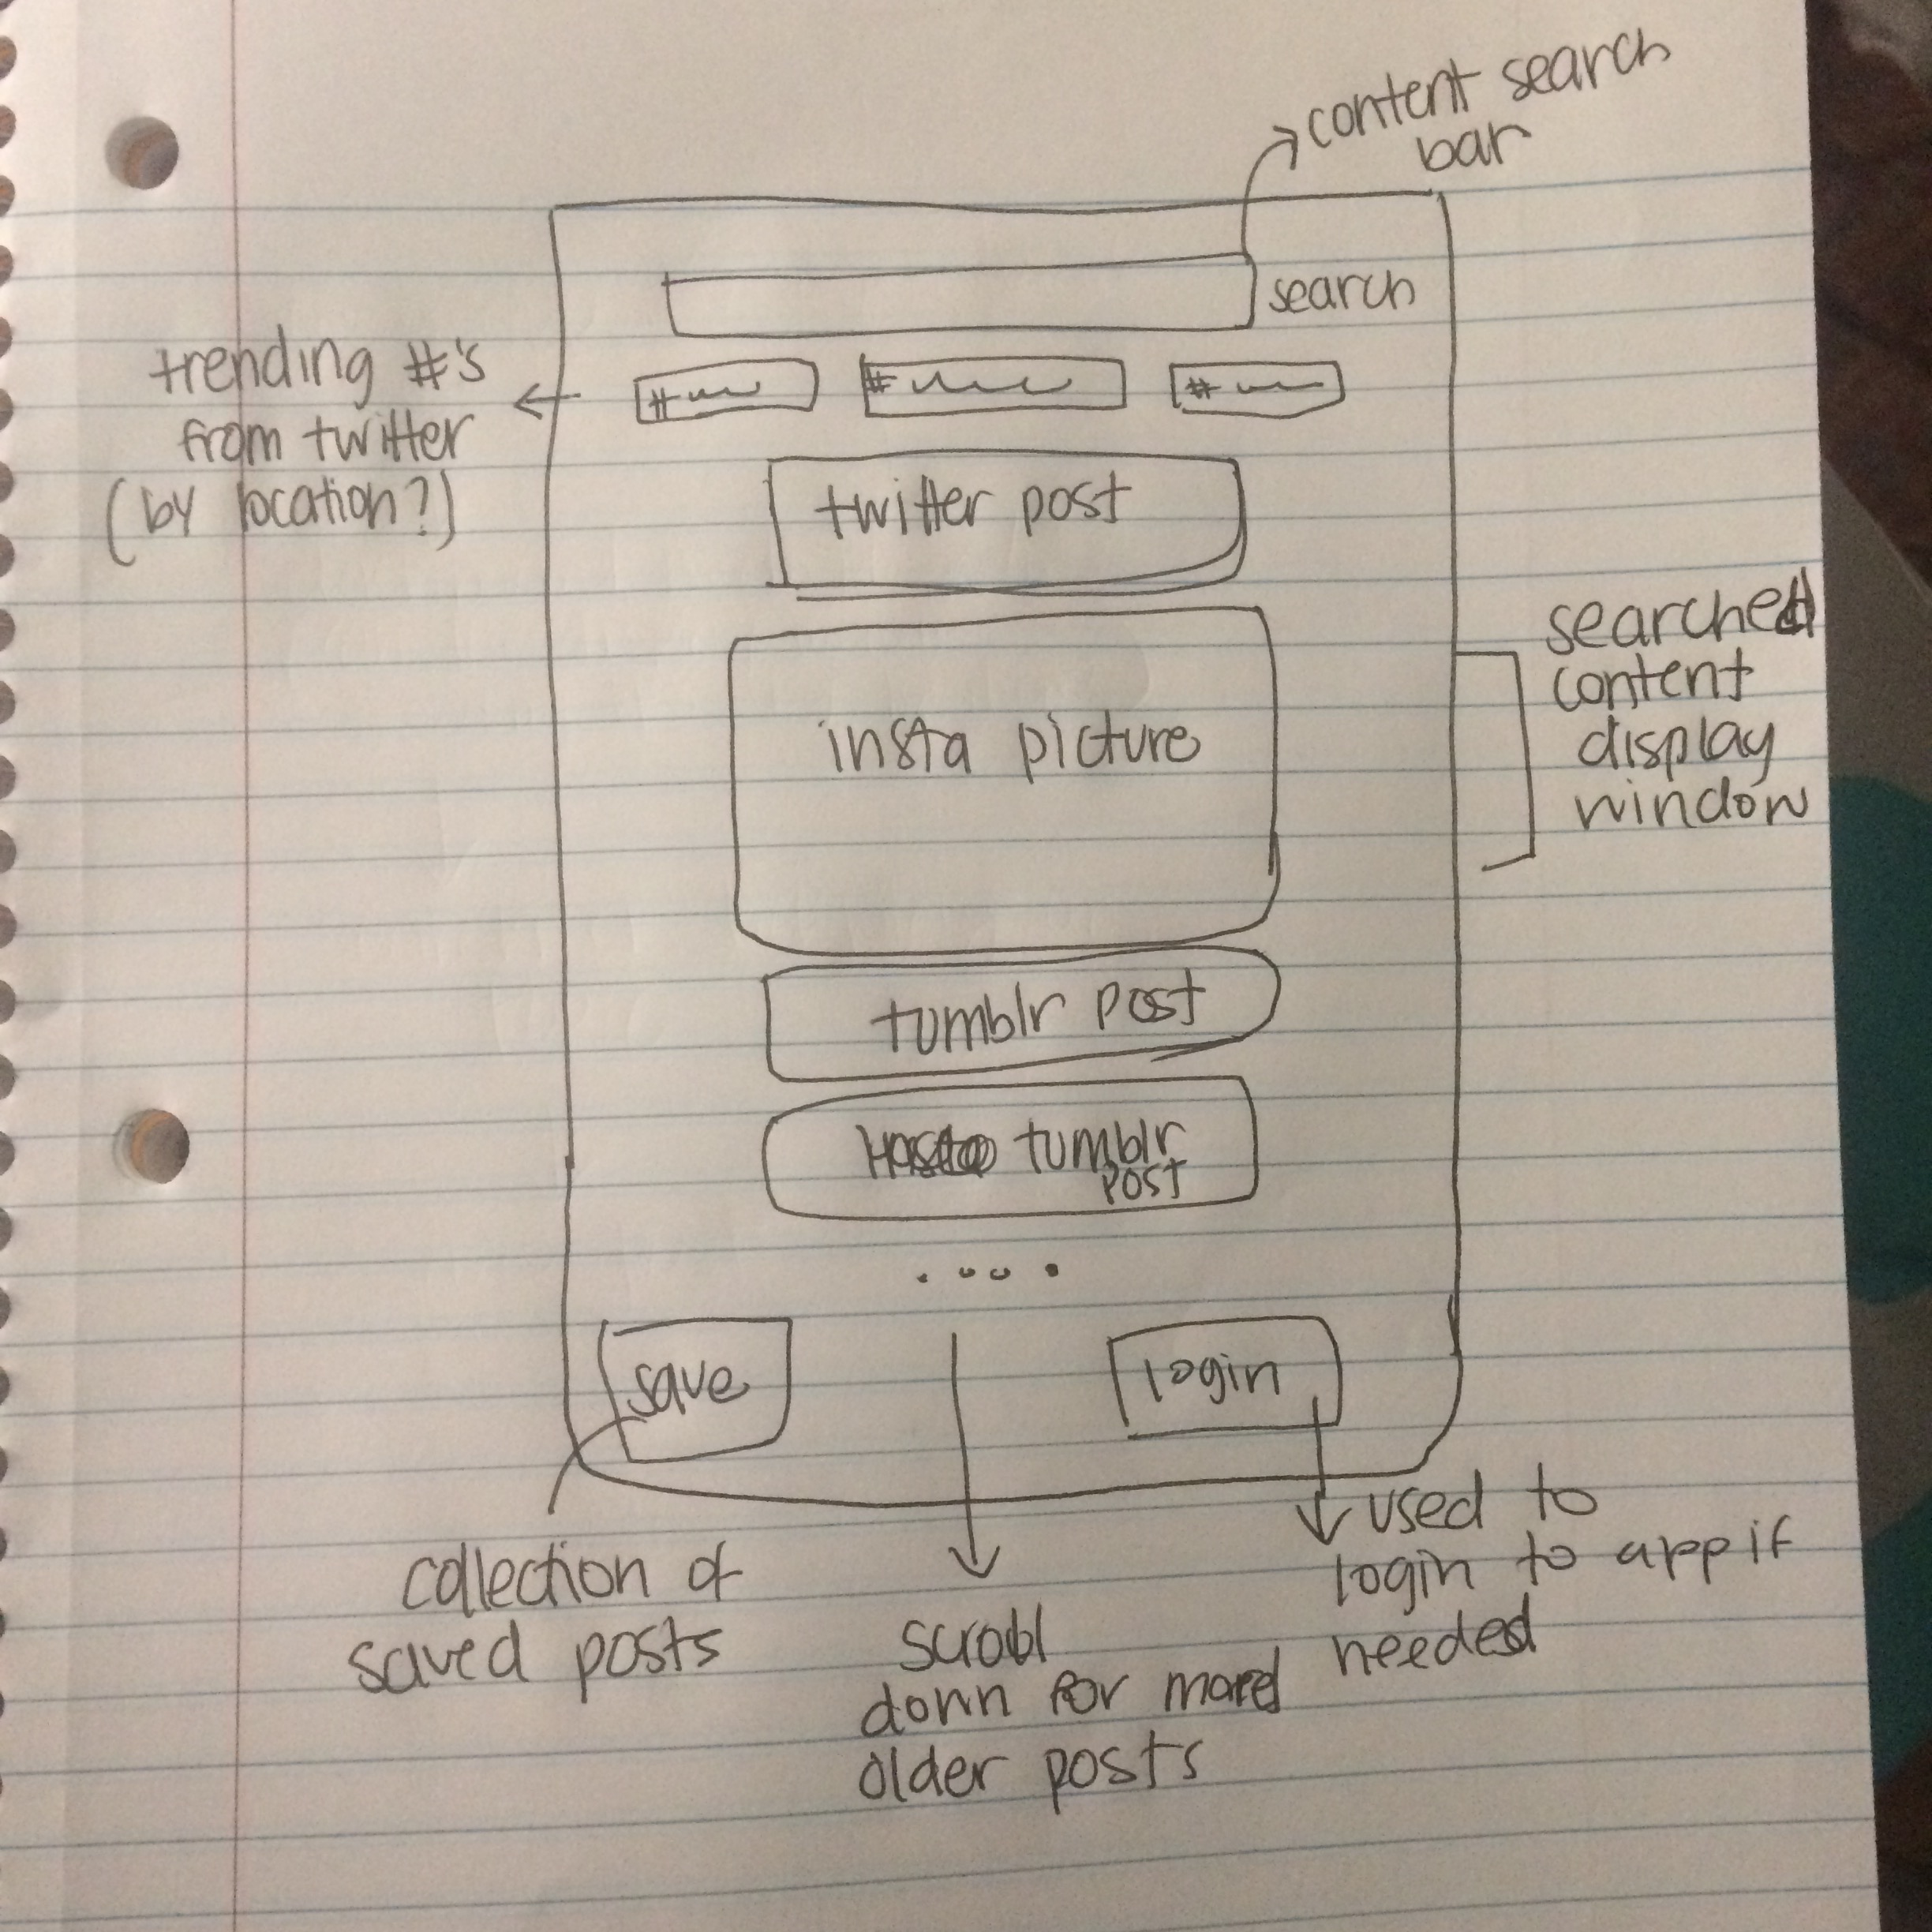 content search
bar
search
trending #'s
from twitter
(by location?)
#
#
#
twitter post
searched
content
display
window
insta picture
tumblr post
tumblr
post
....
save
login
collection of
saved posts
scroll
down for more
older posts
used to
login to app if
needed